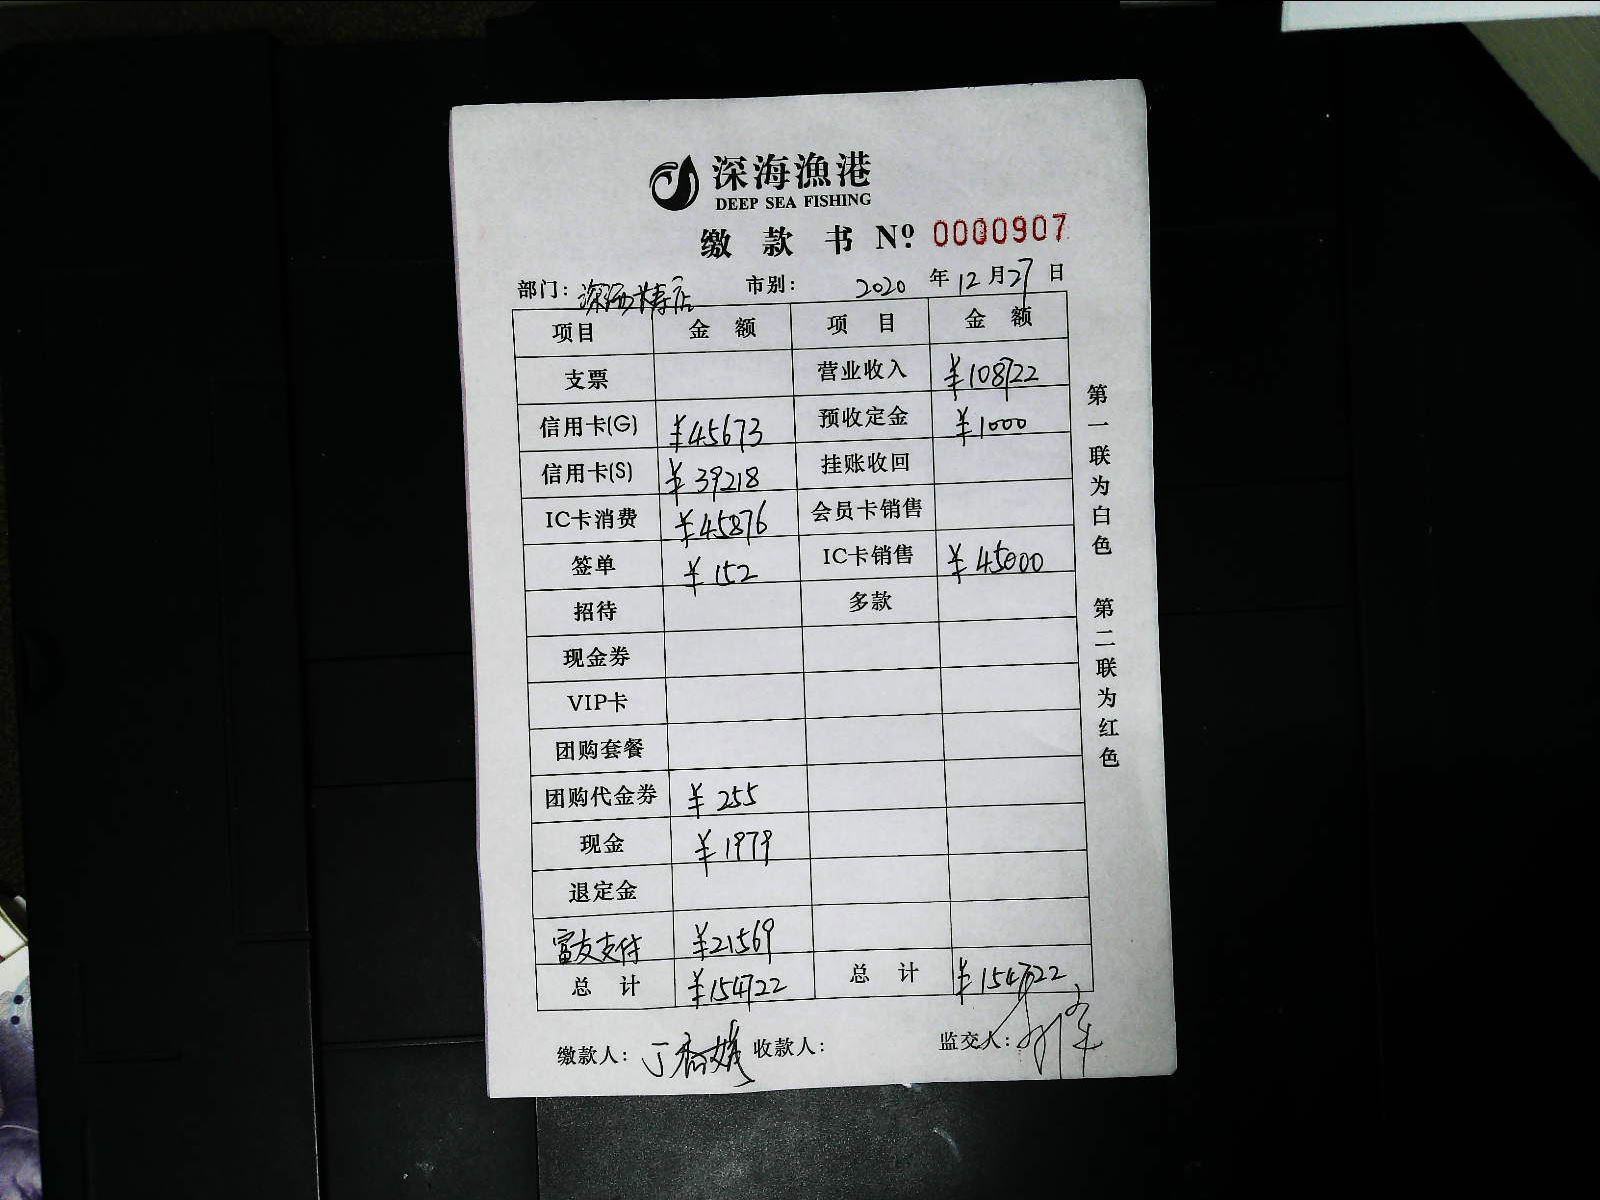 深海漁港
DEEP SEA FISHING
缴 款 书 Nº 0000907
部门： 市别： 2020 年 12 月 27 日
项目 金 额 项 目 金 额
支票 营业收入 ¥108722
信用卡(G) ¥45673 预收定金 ¥1000
信用卡(S) ¥39218 挂账收回
IC卡消费 ¥45876 会员卡销售
签单 ¥152 IC卡销售 ¥45000
招待 多款
现金券
VIP卡
团购套餐
团购代金券 ¥255
现金 ¥1979
退定金
富友支付 ¥21569
总 计 ¥154722 总 计 ¥154722
缴款人： 收款人： 监交人：
第一联为白色 第二联为红色